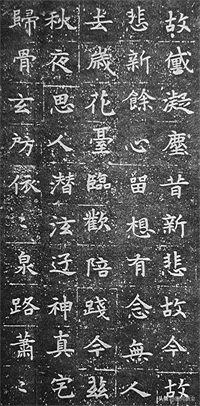 故黛凝塵昔新悲故今故
悲新餘心留想有念無人
去歲花臺臨歡陪踐今茲
秋夜思人潛泫迁神真宅
歸骨玄房依〻泉路蕭〻